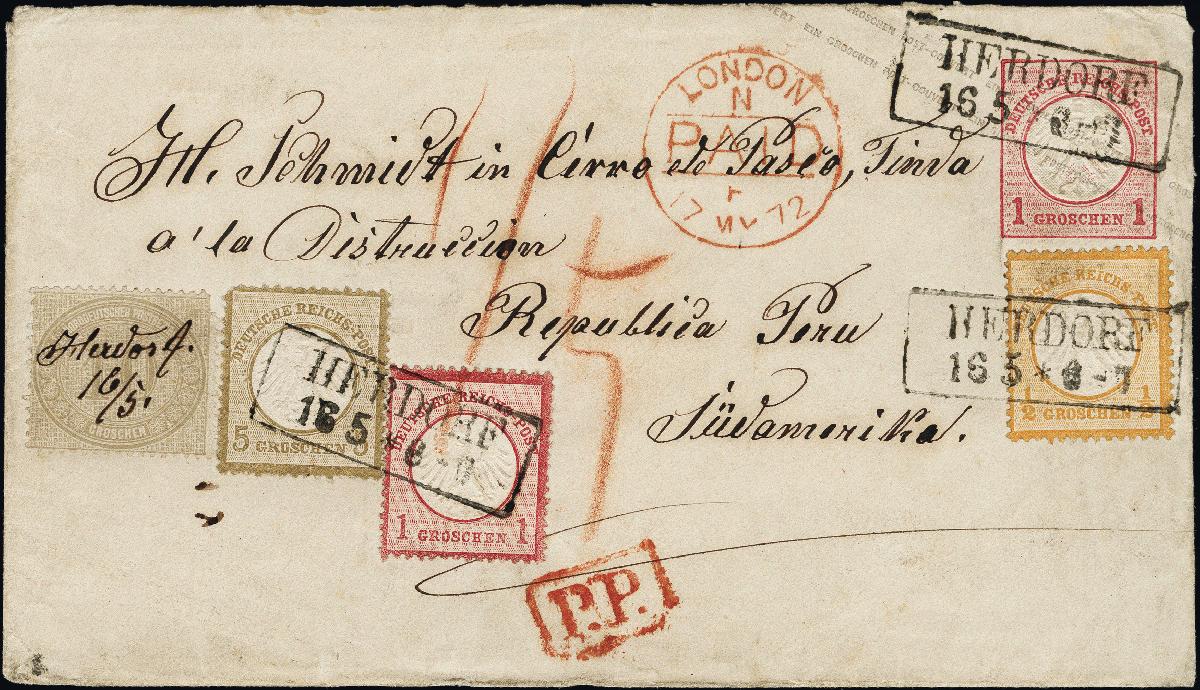 EIN GROSCHEN POST-COUVERT
HERDORF
16 5
DEUTSCHE REICHS-POST
1 GROSCHEN 1
LONDON
N
PAID
17 MY 72
H. Schmidt in Cerro de Pasco, Tinda
a' la Distraccion
Republica Peru
Südamerika.
15
Herdorf.
16/5.
GROSCHEN
DEUTSCHE REICHS-POST
5 GROSCHEN 5
HERDORF
16 5 *
DEUTSCHE REICHS-POST
1 GROSCHEN 1
HERDORF
16 5 * 6-7
1/2 GROSCHEN 1/2
P.P.